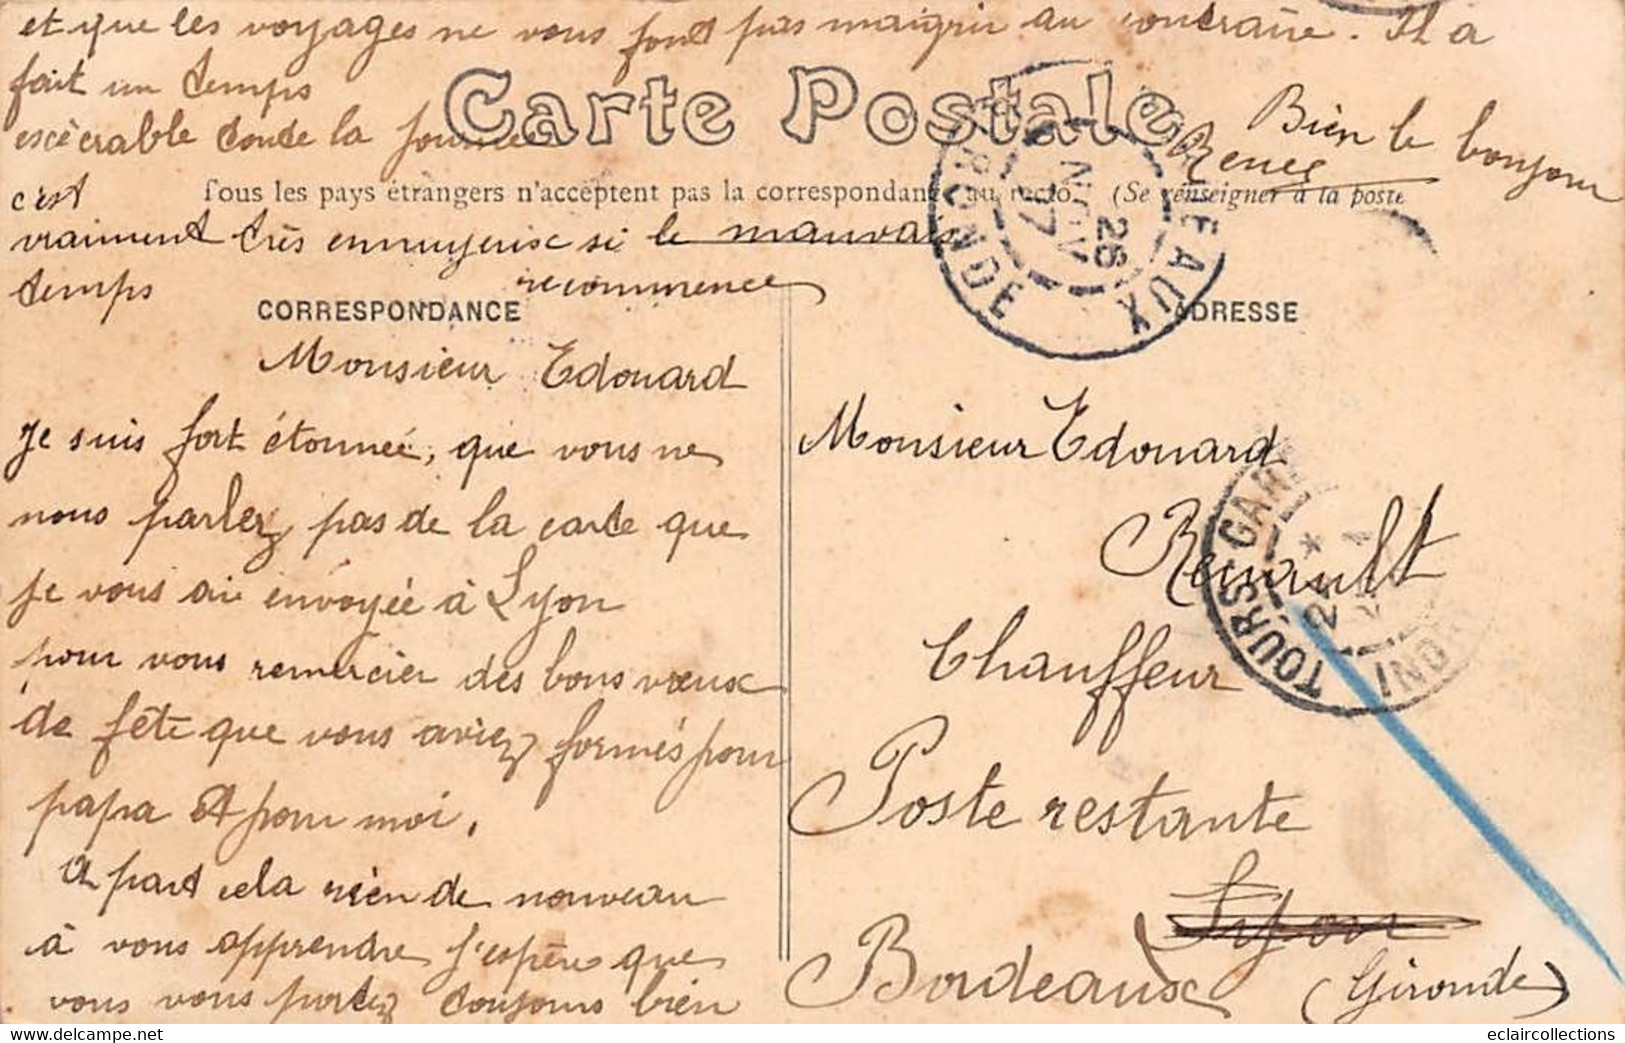 et que les voyages ne vous font pas maigrir au contraire. Il a
fait un temps
Carte Postale
escécrable toute la journée
Bien le bonjour
Renée
Tous les pays étrangers n'acceptent pas la correspondance au recto. (Se renseigner à la poste
c'est
vraiment très ennuyeux si le mauvais
temps recommence
CORRESPONDANCE
Monsieur Edouard
Je suis fort étonnée, que vous ne
nous parlez pas de la carte que
je vous ai envoyée à Lyon
pour vous remercier des bons vœux
de fête que vous aviez formés pour
papa et pour moi.
A part cela rien de nouveau
à vous apprendre j'espère que
vous vous portez toujours bien
ADRESSE
Monsieur Edouard
Renault
Chauffeur
Poste restante
Lyon
Bordeaux (Gironde)
GIRONDE
26
NOV
07
EAUX
TOURS GARE
INDRE
eclaircollections